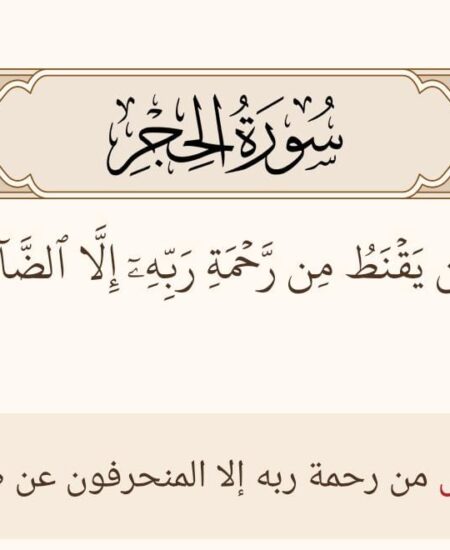 سُورَةُ الْحِجْرِ
يَقْنَطُ مِن رَّحْمَةِ رَبِّهِۦٓ إِلَّا ٱلضَّآ
من رحمة ربه إلا المنحرفون عن